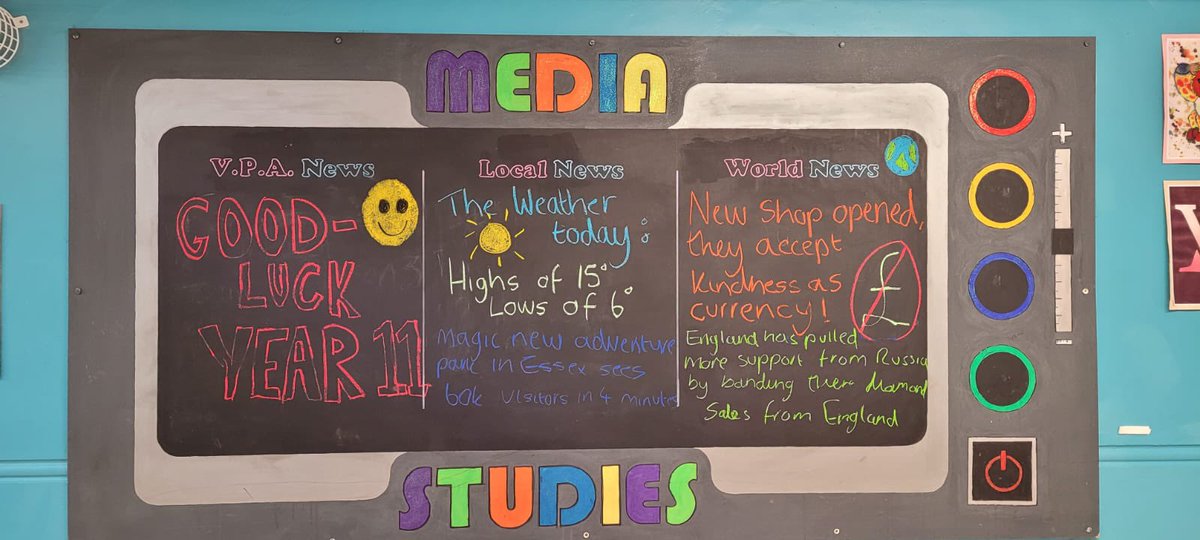 MEDIA
V.P.A. News
GOOD-
LUCK
YEAR 11
Local News
The Weather
today:
Highs of 15°
Lows of 6°
Magic new adventure
park in Essex sees
60k visitors in 4 minutes
World News
New Shop opened,
they accept
Kindness as
currency!
£
England has pulled
more support from Russia
by banding their diamond
Sales from England
STUDIES
+
-
Y